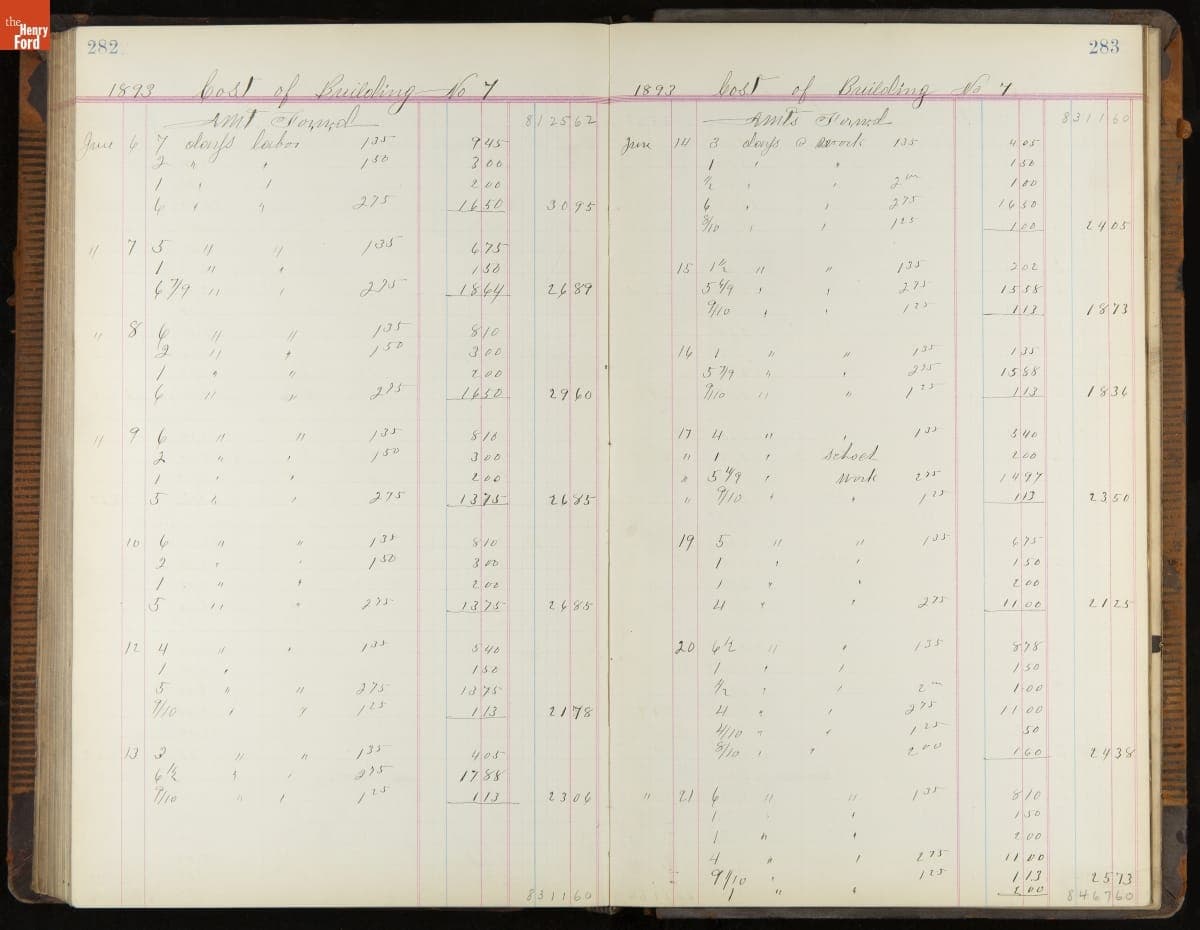 the Henry Ford
282
1893 Cost of Building No 7
Amt Forwd 812562
June 6 7 days labor 135 945
2 " " 150 300
1 " " 200
6 " " 275 1650 3095
" 7 5 " " 135 675
1 " " 150
6 7/9 " " 275 1864 2689
" 8 6 " " 135 810
2 " " 150 300
1 " " 200
6 " " 275 1650 2960
" 9 6 " " 135 810
2 " " 150 300
1 " " 200
5 " " 275 1375 2685
10 6 " " 135 810
2 " " 150 300
1 " " 200
5 " " 275 1375 2685
12 4 " " 135 540
1 " 150
5 " " 275 1375
9/10 " " 125 113 2178
13 3 " " 135 405
6 1/2 " " 275 1788
9/10 " " 125 113 2306
831160
283
1893 Cost of Building No 7
Amts Forwd 831160
June 14 3 days @ work 135 405
1 " " 150
1/2 " " 2 00 100
6 " " 275 1650
8/10 " " 125 100 2405
15 1 1/2 " " 135 202
5 6/9 " " 275 1558
9/10 " " 125 113 1873
16 1 " " 135 135
5 7/9 " " 275 1588
9/10 " " 125 113 1836
17 4 " " 135 540
" 1 " school 200
" 5 4/9 " work 275 1497
" 9/10 " " 125 113 2350
19 5 " " 135 675
1 " " 150
1 " " 200
4 " " 275 1100 2125
20 6 1/2 " " 135 878
1 " " 150
1/2 " " 2 00 100
4 " " 275 1100
4/10 " " 125 50
8/10 " " 200 160 2438
" 21 6 " " 135 810
1 " " 150
1 " " 200
4 " " 275 1100
9/10 " " 125 113 2573
1 " " 200 846760